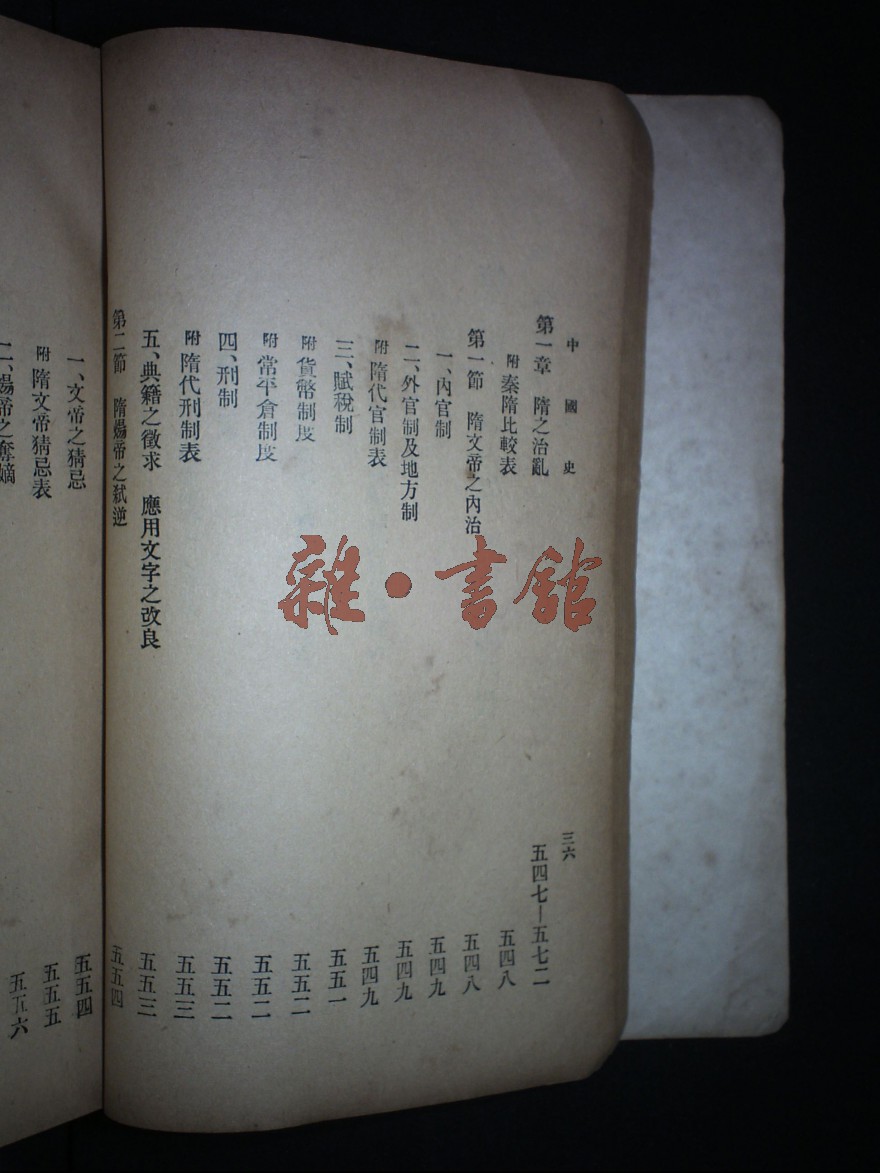 中國史　三六
第一章　隋之治亂　五四七—五七二
附　秦隋比較表　五四八
第一節　隋文帝之內治　五四八
一、內官制　五四九
二、外官制及地方制　五四九
附　隋代官制表　五四九
三、賦稅制　五五一
附　貨幣制度　五五二
附　常平倉制度　五五二
四、刑制　五五二
附　隋代刑制表　五五三
五、典籍之徵求　應用文字之改良　五五三
第二節　隋煬帝之弒逆　五五四
一、文帝之猜忌　五五四
附　隋文帝猜忌表　五五五
二、煬帝之奪嫡　五五六
雜·書館